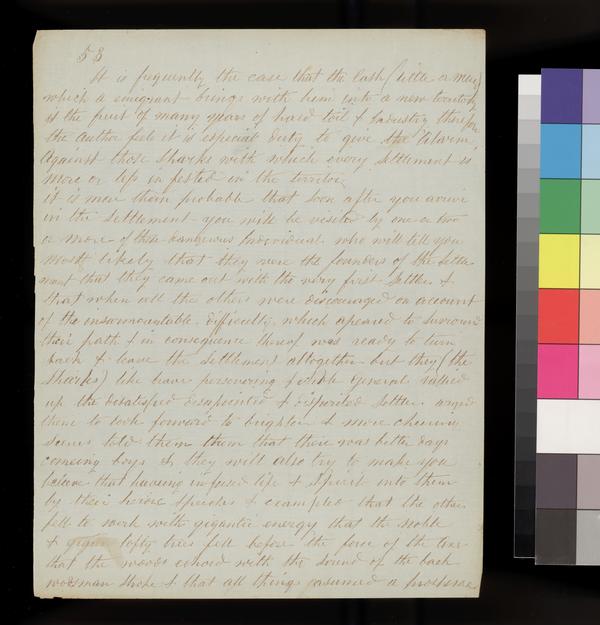 53
It is frequently the case that the cash (little or much)
which a emigrant brings with him into a new territory
is the fruit of many years of hard toil & industry therefore
the author felt it is especial duty to give the alarm
against those sharks with which every settlement is
more or less infested in the territory
it is more than probable that soon after you arrive
in the settlement you will be visited by one or two
or more of these dangerous individuals who will tell you
most likely that they were the founders of the settle
ment that they came out with the very first settlers &
that when all the others were discouraged on account
of the insurmountable difficulties which apeared to surround
their path & in consequence thereof was ready to turn
back & leave the settlement altogether but they (the
sharks) like brave persevering & General rallied
up the disatisfied disapointed & dispirited settlers urged
them to look forward to brighter & more cheering
scenes told them them that their was better days
comeing boys & they will also try to make you
beleive that haveing infused life & spirit into them
by their heroic speeches & examples that the others
fell to work with gigantic energy that the noble
& lofty trees fell before the force of the axe
that the woods echoed with the sound of the back
woodsman stroke & that all things assumed a